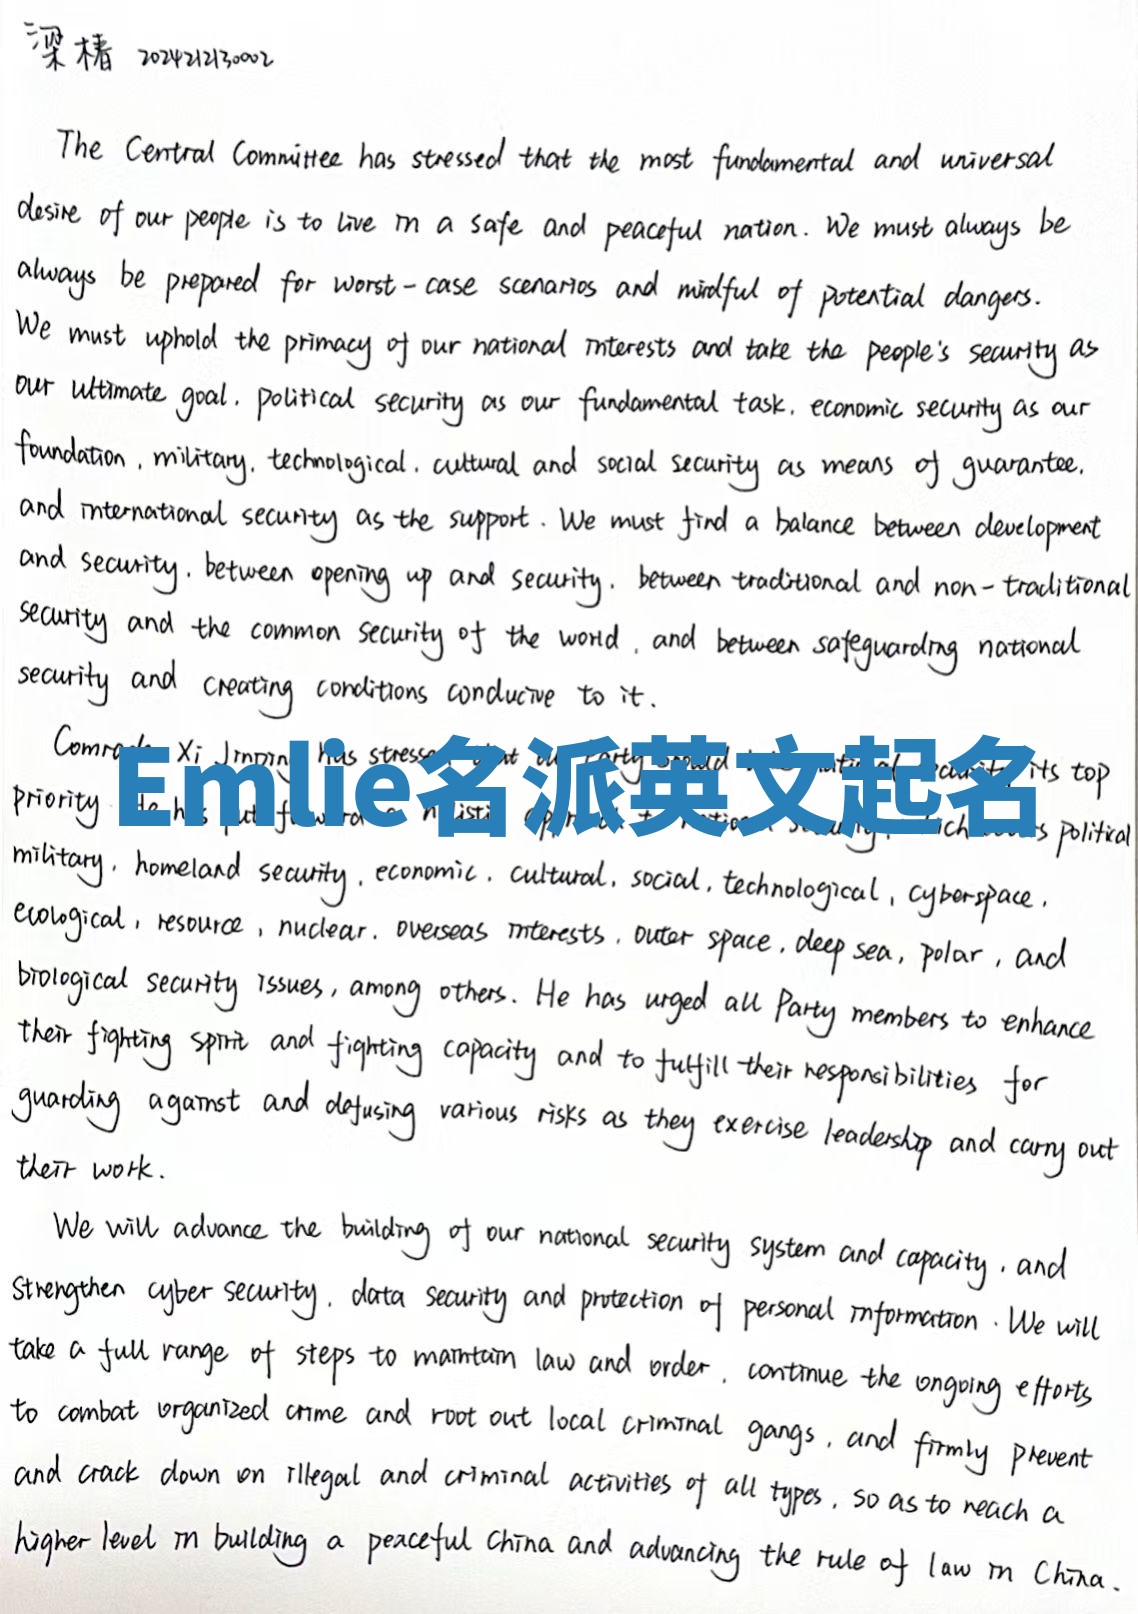 梁椿 2024212130002
The Central Committee has stressed that the most fundamental and universal
desire of our people is to live in a safe and peaceful nation. We must always be
always be prepared for worst-case scenarios and mindful of potential dangers.
We must uphold the primacy of our national interests and take the people's security as
our ultimate goal, political security as our fundamental task, economic security as our
foundation, military, technological, cultural and social security as means of guarantee,
and international security as the support. We must find a balance between development
and security, between opening up and security, between traditional and non-traditional
security and the common security of the world, and between safeguarding national
security and creating conditions conducive to it.
Comrade Xi Jinping has stressed that our Party should national security its top
Emlie名派英文起名
priority. He has put forward a holistic approach to national security, which political
military, homeland security, economic, cultural, social, technological, cyberspace,
ecological, resource, nuclear, overseas interests, outer space, deep sea, polar, and
biological security issues, among others. He has urged all Party members to enhance
their fighting spirit and fighting capacity and to fulfill their responsibilities for
guarding against and defusing various risks as they exercise leadership and carry out
their work.
We will advance the building of our national security system and capacity, and
strengthen cyber security, data security and protection of personal information. We will
take a full range of steps to maintain law and order, continue the ongoing efforts
to combat organized crime and root out local criminal gangs, and firmly prevent
and crack down on illegal and criminal activities of all types, so as to reach a
higher level in building a peaceful China and advancing the rule of law in China.